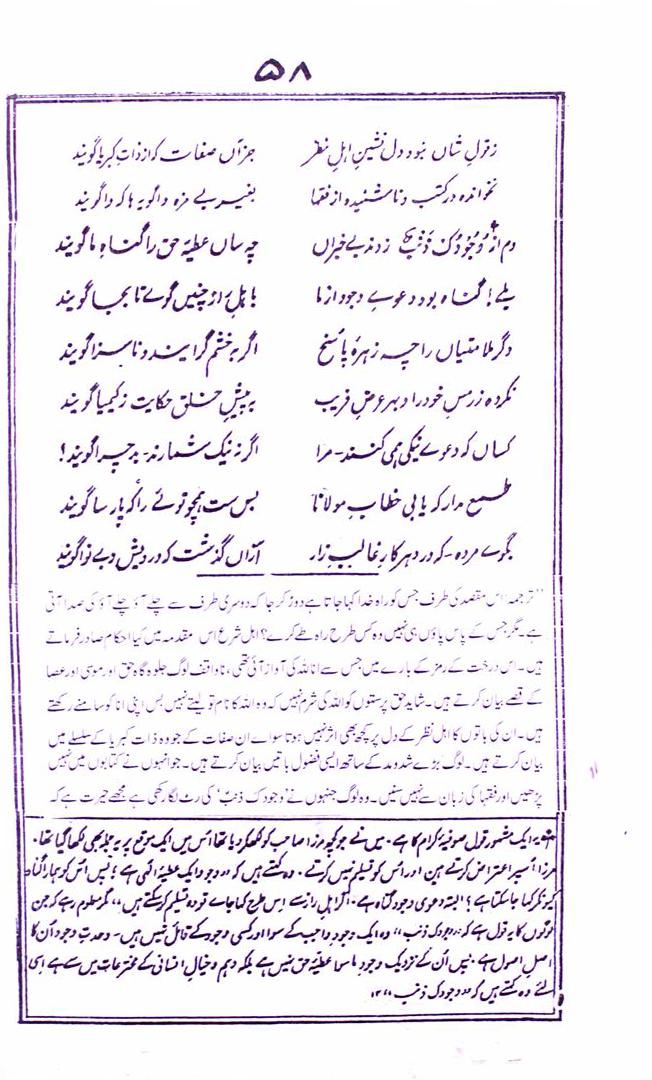 ۵۸
ز قولِ شاں نبود دل نشینِ اہلِ نظر جز آں صفات کہ از ذاتِ کبریا گویند
نخواندہ در کتب و ناشنیدہ از فقہا بغیر بے مزہ و اگویہ ہا کہ وا گویند
دم از وُجُوْدُکَ ذَنْبٌ زدند بے خبراں چہ ساں عطیۂ حق را گناہِ ما گویند
بلے! گناہ بود دعوےِ وجود از ما باہلِ راز چنیں گوے تا بجا گویند
دگر ملامتیاں را چہ زہرۂ پاسخ اگر بہ خشم گرایند و ناسزا گویند
نکردہ زر مسِ خود را و بہر عرضِ فریب بہ پیشِ خلق حکایت ز کیمیا گویند
کساں کہ دعوےِ نیکی ہمی کنند۔ مرا اگر نہ نیک شمارند۔ بد چرا گویند!
طمع مدار کہ یابی خطابِ مولانا بس ست ہمچو توئے را کہ پارسا گویند
بگوے مردہ۔ کہ در دہر کارِ غالبِ زار ازاں گذشت کہ درویش و بے نوا گویند
"ترجمہ: اس مقصد کی طرف جس کو راہ خدا کہا جاتا ہے دوڑ کر جا کہ دوسری طرف سے چلے آؤ چلے آؤ کی صدا آتی
ہے۔ مگر جس کے پاس پاؤں ہی نہیں وہ کس طرح راہ طے کرے؟ اہل شرع اس مقدمہ میں کیا احکام صادر فرماتے
ہیں۔ اس درخت کے رمز کے بارے میں جس سے انا اللہ کی آواز آئی تھی، ناواقف لوگ جلوہ گاہ حق اور موسیٰ اور عصا
کے قصے بیان کرتے ہیں۔ شاید حق پرستوں کو اللہ کی شرم نہیں کہ وہ اللہ کا نام تو لیتے نہیں بس اپنی انا کو سامنے رکھتے
ہیں۔ ان کی باتوں کا اہل نظر کے دل پر کچھ بھی اثر نہیں ہوتا سوائے ان صفات کے جو وہ ذات کبریا کے سلسلے میں
بیان کرتے ہیں۔ لوگ بڑے شدومد کے ساتھ ایسی فضول باتیں بیان کرتے ہیں۔ جو انہوں نے کتابوں میں نہیں
پڑھیں اور فقہا کی زبان سے نہیں سنیں۔ وہ لوگ جنہوں نے 'وجودک ذنب' کی رٹ لگا رکھی ہے مجھے حیرت ہے کہ
یہ ایک مشہور قول صوفیۂ کرام کا ہے۔ میں نے جو کچھ مرزا صاحب کو لکھ کر دیا تھا اُس میں ایک موقع پر یہ جملہ بھی لکھا گیا تھا۔
مرزا اسپر اعتراض کرتے ہین اور اُس کو تسلیم نہیں کرتے۔ وہ کہتے ہیں کہ "وجود ایک عطیۂ الٰہی ہے؛ پس اُس کو ہمارا گناہ
کیونکر کہا جا سکتا ہے؟ البتہ دعویِ وجود گناہ ہے۔ اگر اہلِ راز سے اس طرح کہا جاے تو وہ تسلیم کر سکتے ہیں"، مگر معلوم رہے کہ جن
لوگوں کا یہ قول ہے کہ "وجودک ذنب"، وہ ایک وجودِ واجب کے سوا اور کسی وجود کے قائل نہیں ہیں۔ وحدتِ وجود اُن کا
اصل اصول ہے۔ پس اُن کے نزدیک وجودِ ماسوا عطیۂ حق نہیں ہے بلکہ وہم و خیالِ انسانی کے مخترعات میں سے ہے اسی
لئے وہ کہتے ہیں کہ "وجودک ذنب"، ۱۲۔